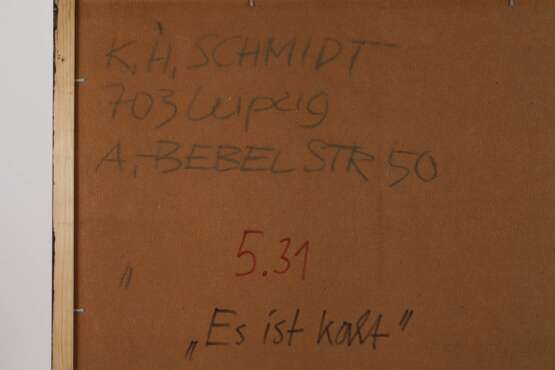 K.H. SCHMIDT
703 Leipzig
A.-BEBEL STR 50
5.31
"
„Es ist kalt"